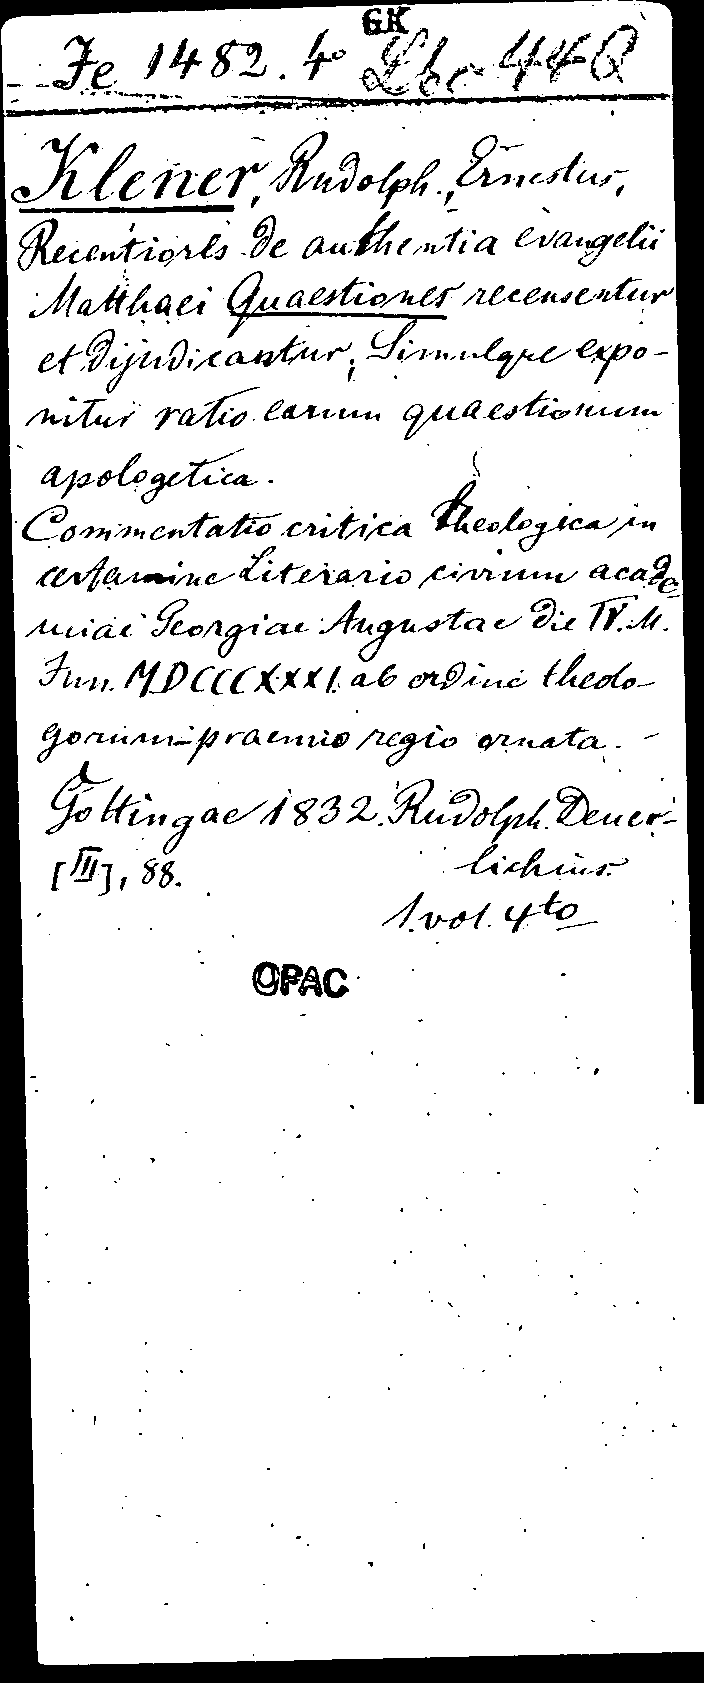 GK
Fe 1482. 4° Lbc 44Q
Klener, Rudolph., Ernestus,
Recentiores de authentia evangelii
Matthaei Quaestiones recensentur
et dijudicantur; Simulque expo-
nitur ratio earum quaestionum
apologetica.
Commentatio critica theologica in
certamine Literario civium acade
miae Georgiae Augustae die IV. M.
Jun. MDCCCXXXI. ab ordine theolo-
gorum praemio regio ornata. -
Gottingae 1832. Rudolph. Deuer-
lichius.
[III], 88.
1. vol. 4to
OPAC